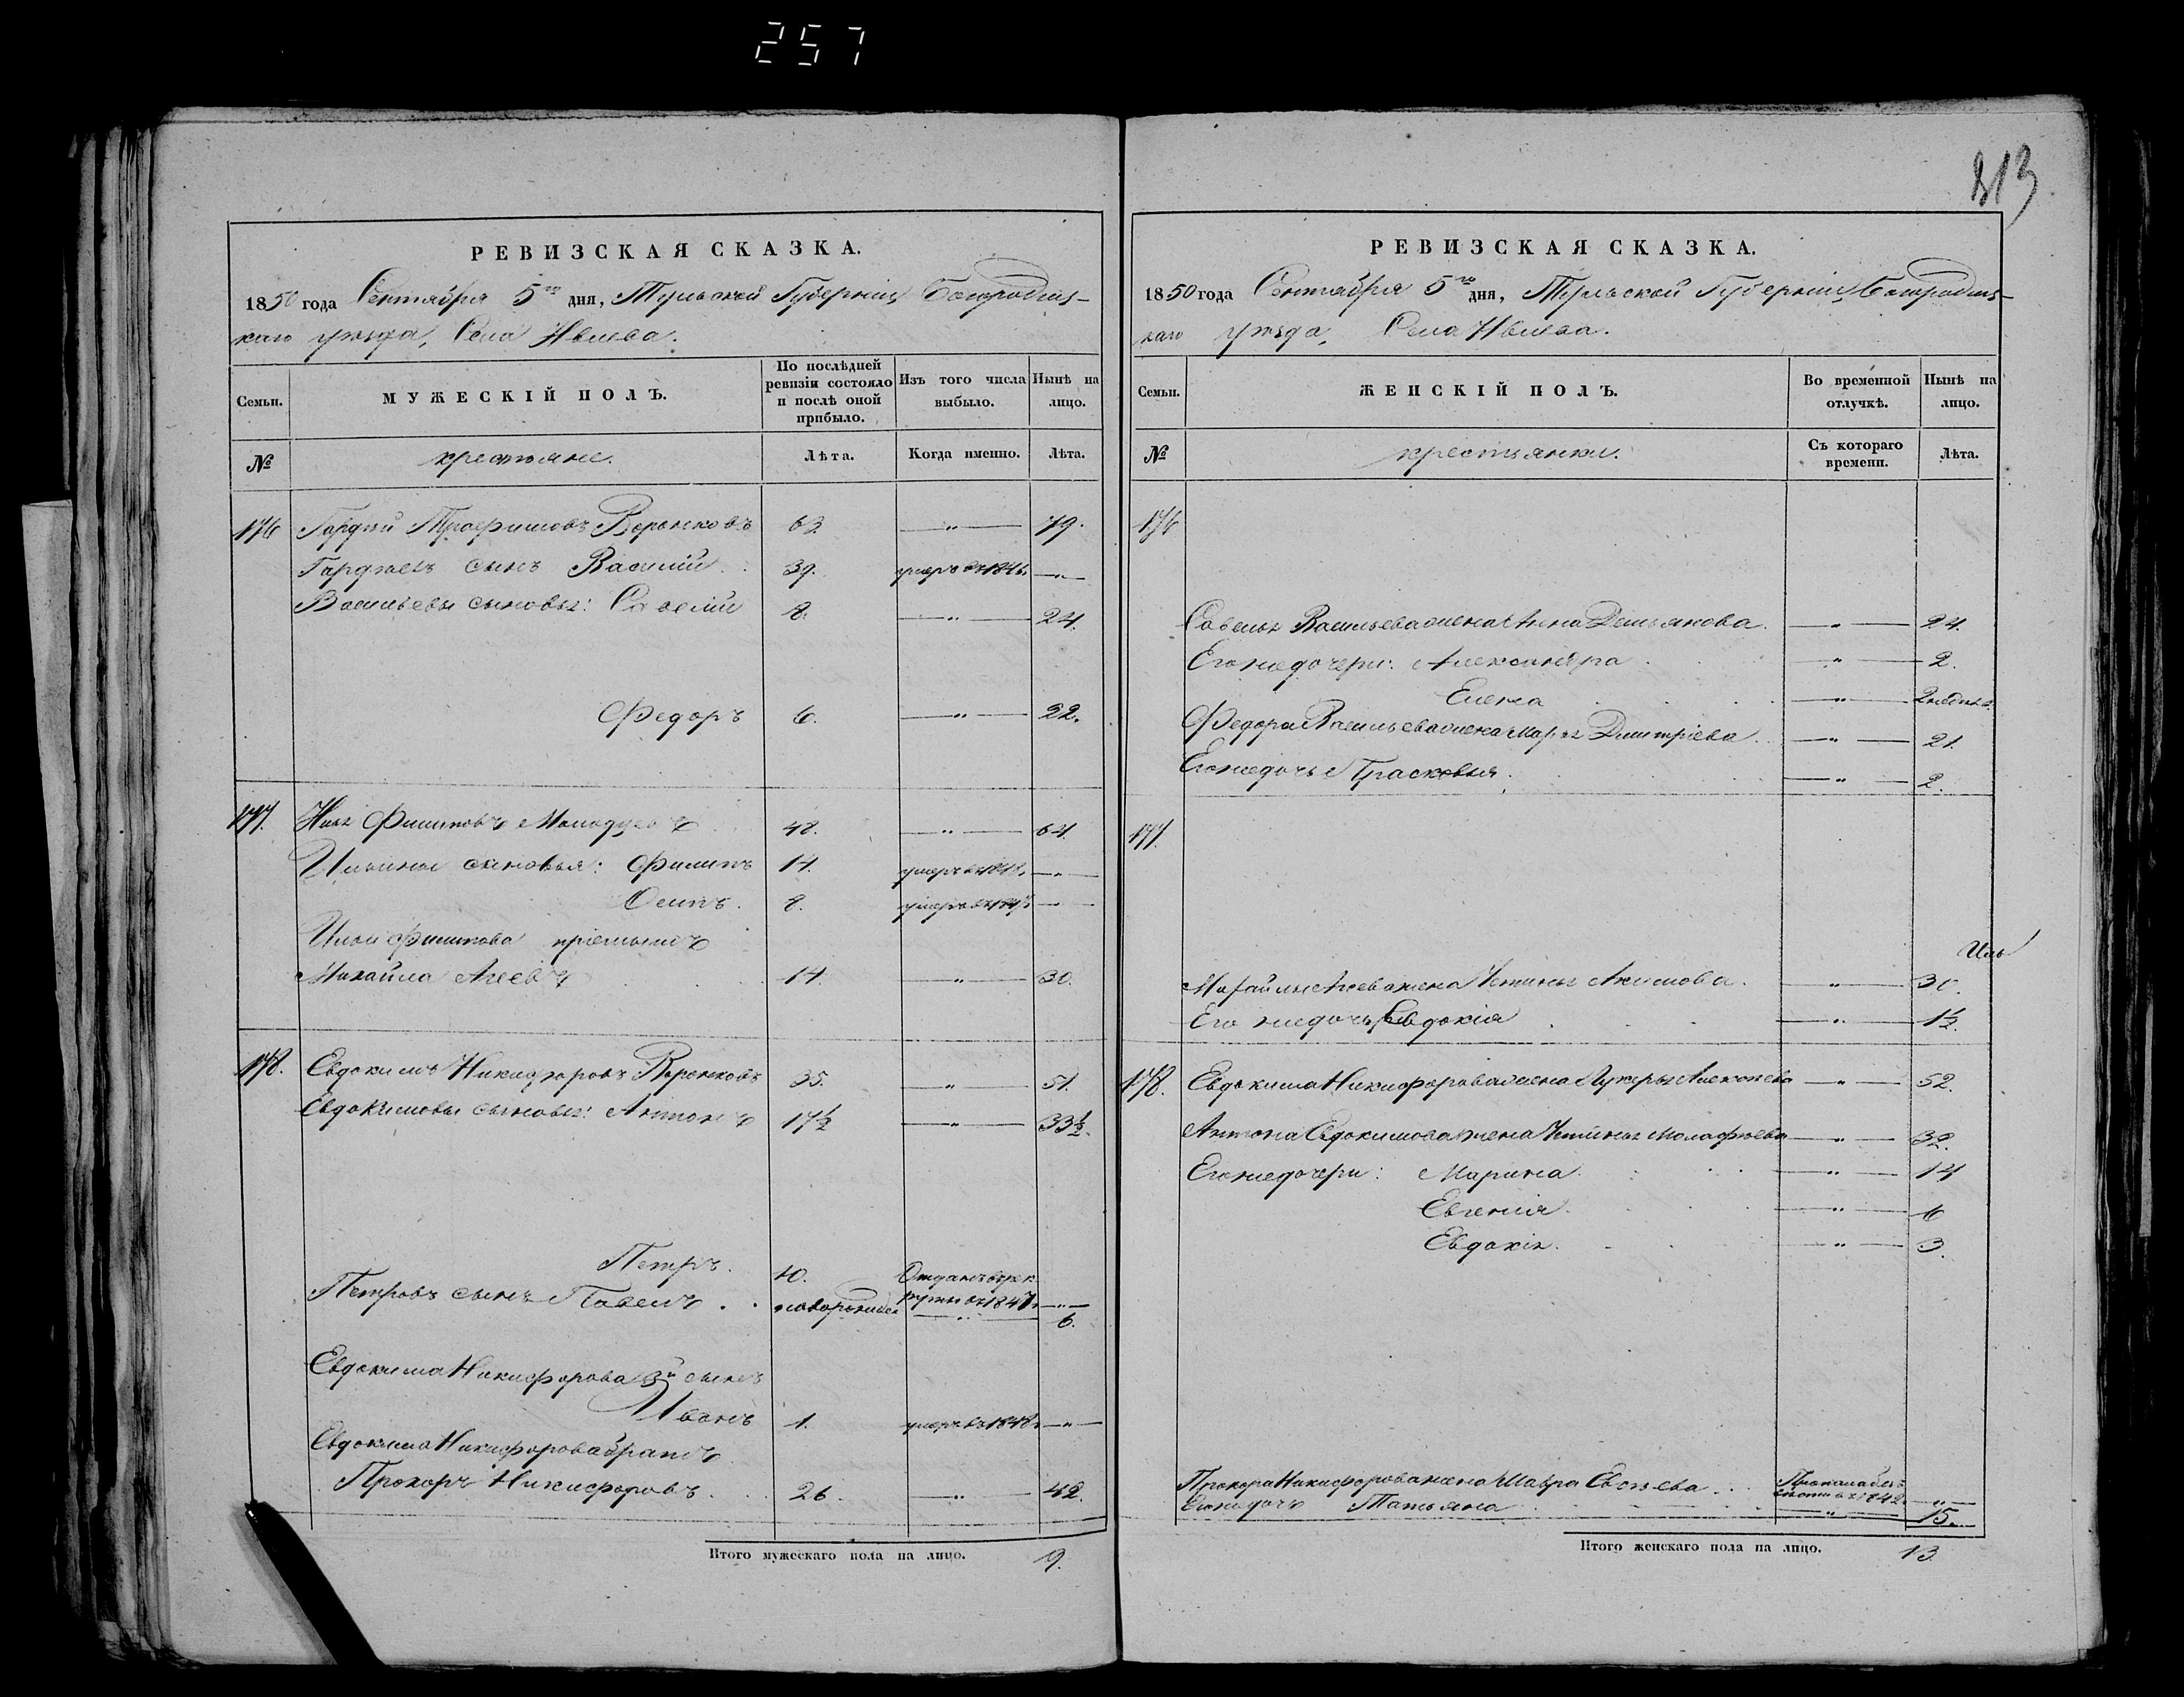 257
313
РЕВИЗСКАЯ СКАЗКА.
1850 года Сентября 5го дня, Тульской Губерніи Богородиц-
каго уѣзда, Села
Семьи.
МУЖЕСКІЙ ПОЛЪ.
По послѣдней ревизіи состояло и послѣ оной прибыло.
Изъ того числа выбыло.
Нынѣ на лицо.
№
крестьяне.
Лѣта.
Когда именно.
Лѣта.
176 Гордѣй Трофимовъ Воронковъ 63. —„— 79.
Гордѣевъ сынъ Василій 39. умеръ въ 1846. —„—
Васильевы сыновья: Савелій 8. —„— 24.
Федоръ 6. —„— 22.
177. Илья Филиповъ 48. —„— 64.
Ильины сыновья: Филипъ 14. умеръ въ —„—
Осипъ. 8. умеръ въ —„—
Ильи Филипова пріемышъ
Михайла Агеевъ 14. —„— 30.
178. Евдокимъ Никифоровъ Воронковъ 35. —„— 51.
Евдокимовы сыновья: Антонъ 17½ —„— 33½.
Петръ. 10. Отданъ въ рек
руты въ 1847. —„—
Петровъ сынъ Павелъ . . новорожден —„— 6.
Евдокима Никифорова 3й сынъ
Иванъ 1. умеръ въ 1848. —„—
Евдокима Никифорова братъ
Прохоръ Никифоровъ. 26. —„— 42.
Итого мужескаго пола на лицо. 9.
РЕВИЗСКАЯ СКАЗКА.
1850 года Сентября 5го дня, Тульской Губерніи, Богородиц-
каго уѣзда, Села
Семьи.
ЖЕНСКІЙ ПОЛЪ.
Во временной отлучкѣ.
Нынѣ на лицо.
№
крестьянки.
Съ котораго времени.
Лѣта.
176
Савелья Васильева жена Анна Демьянова. —„— 24.
Его же дочери: Александра —„— 2.
Елена —„— 2 недѣль.
Федора Васильева жена Марья Дмитріева —„— 21.
Его же дочь Прасковья. —„— 2.
177.
Михайлы Агеева жена Устинья Акимова. —„— 30.
Его же дочь Евдокія —„— 1½.
178. Евдокима Никифорова жена Лукерья —„— 52.
Антона Евдокимова жена Устинья —„— 32.
Его же дочери: Марина —„— 14
Евгенія. —„— 6
Евдокія. —„— 3.
Прохора Никифорова жена Мавра —„—
Его же дочь Татьяна —„— 15.
Итого женскаго пола на лицо. 13.